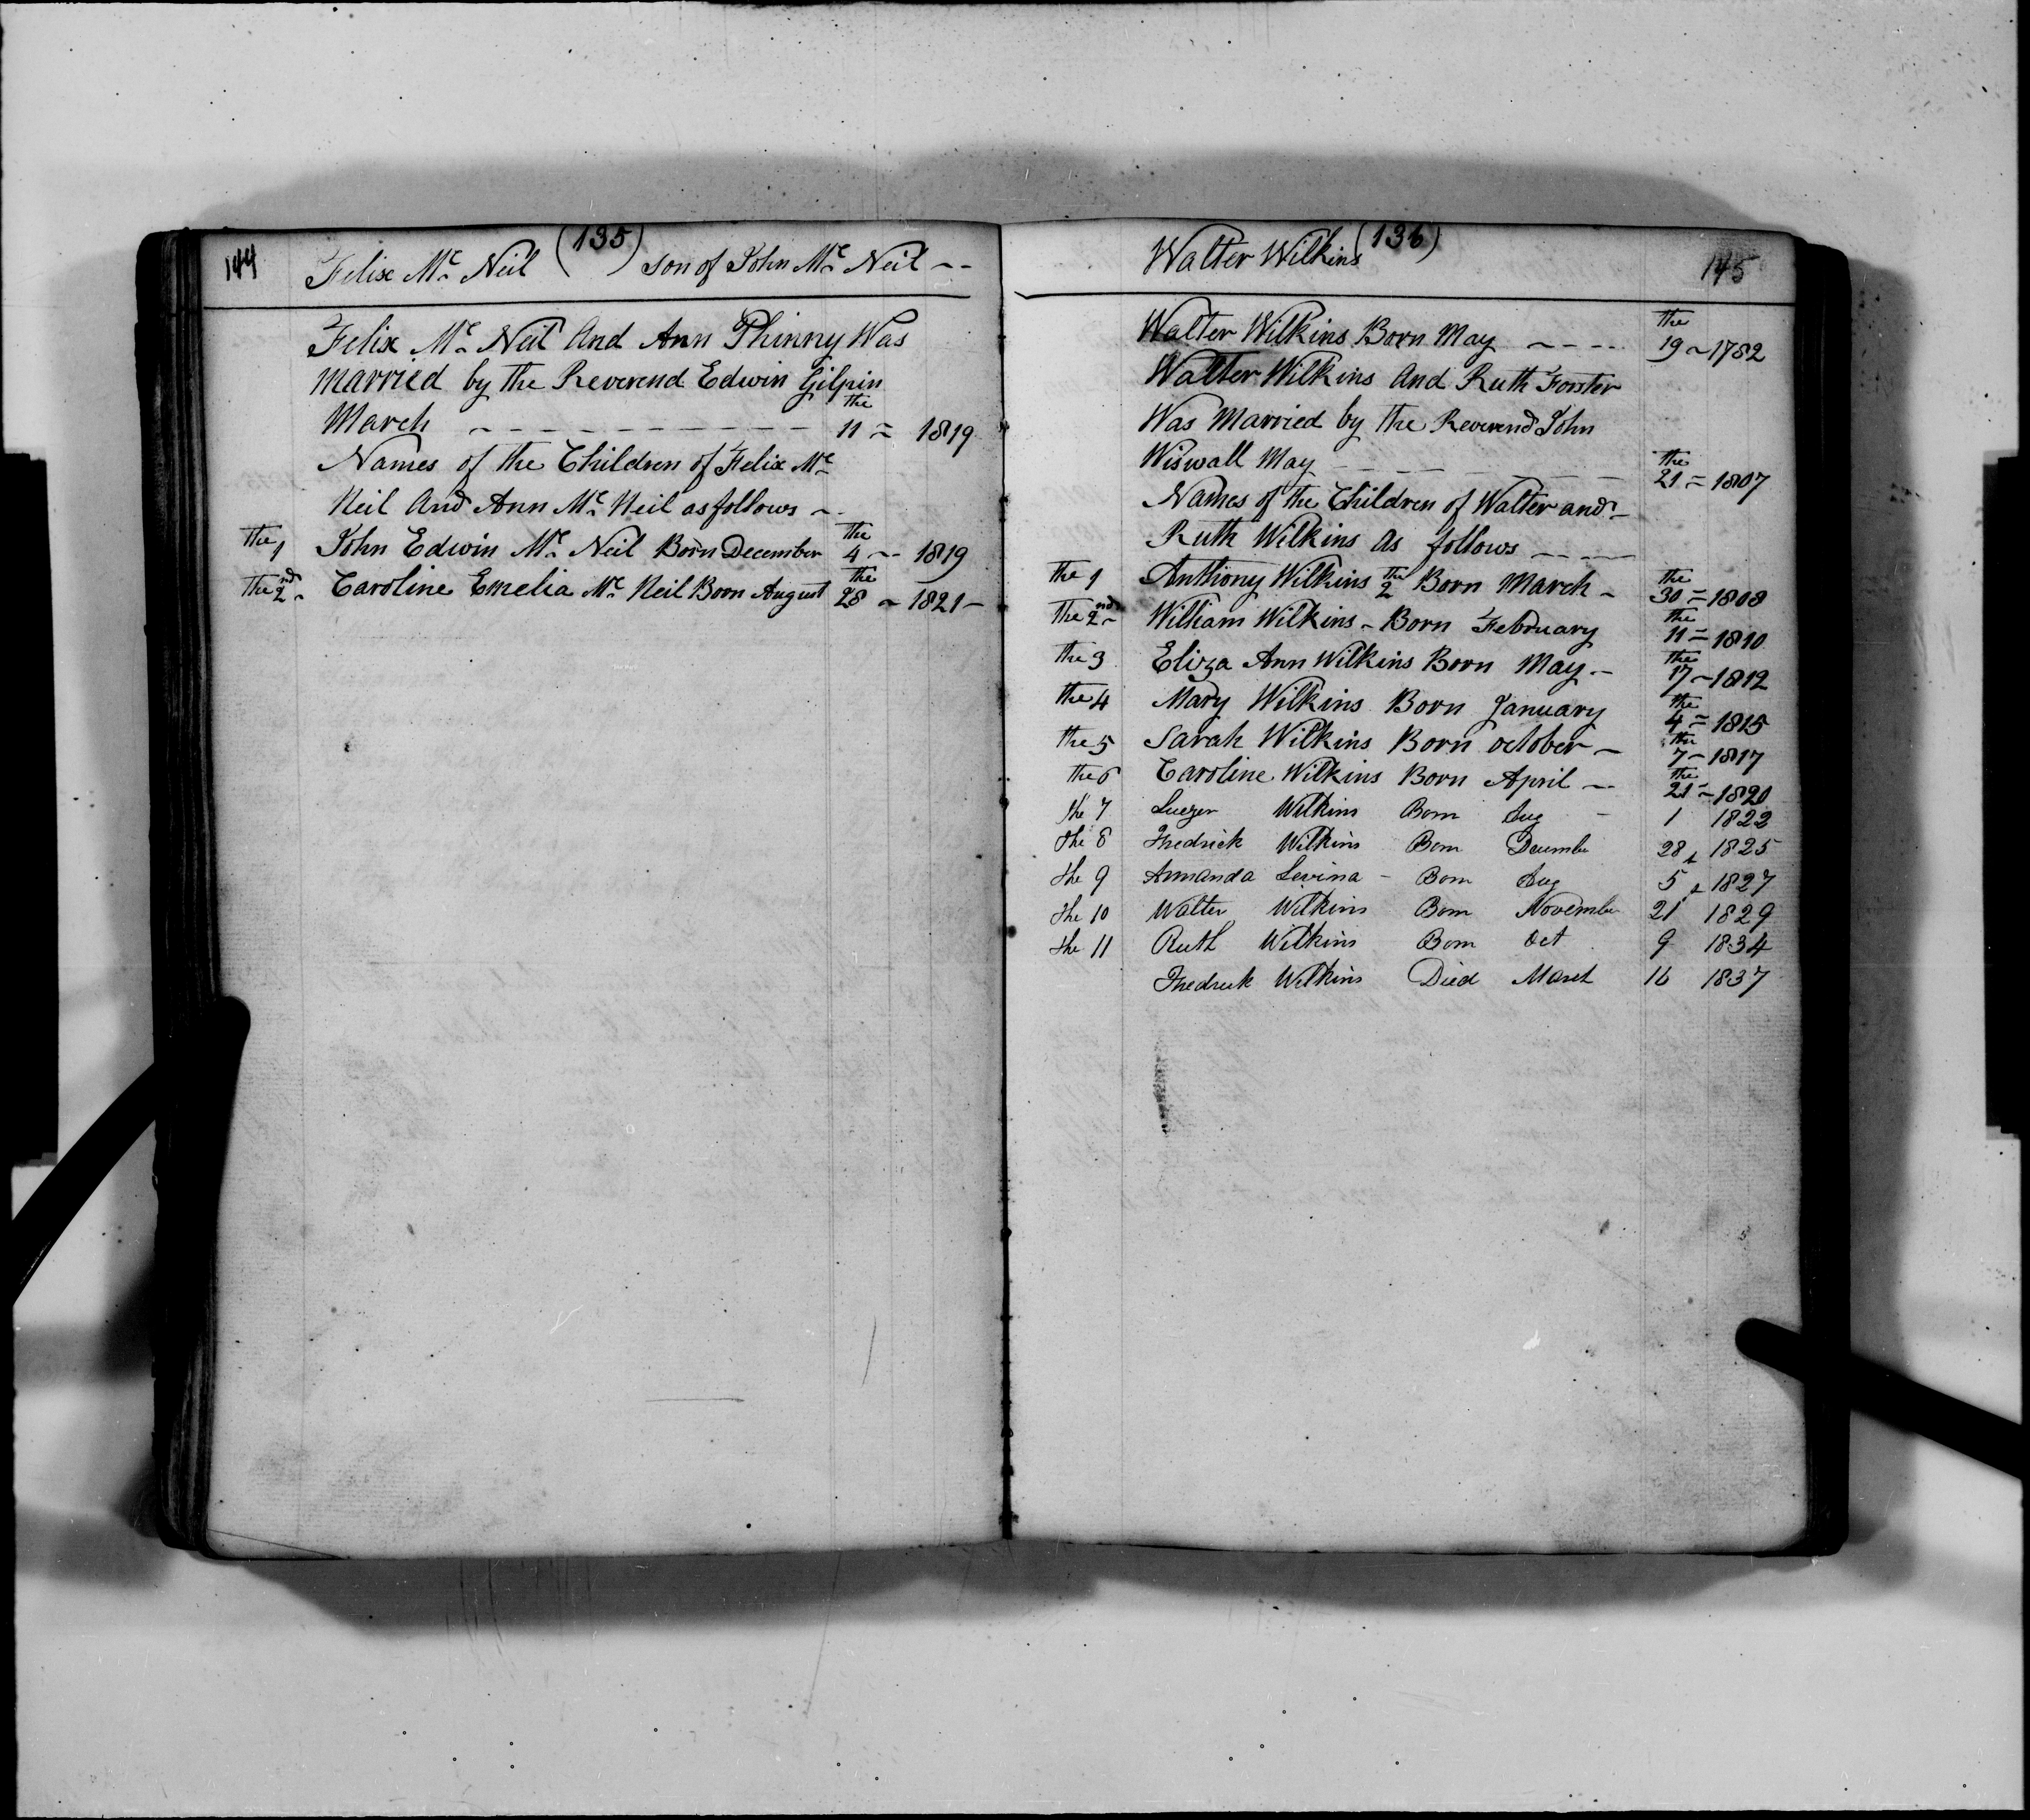 144 (135)
Felix Mc Neil son of John Mc Neil --
Felix Mc Neil And Ann Phinny Was
married by the Reverend Edwin Gilpin
March - - - - - - - - - - the 11 = 1819
Names of the Children of Felix Mc
Neil And Ann Mc Neil as follows -
the 1 John Edwin Mc Neil Born December the 4 -- 1819
the 2nd Caroline Emelia Mc Neil Born August the 28 - 1821 -
Walter Wilkins (136) 145
Walter Wilkins Born May - - - - the 19 - 1782
Walter Wilkins And Ruth Forster
Was Married by the Reverend John
Wiswall May - - - - - - the 21 = 1807
Names of the Children of Walter and -
Ruth Wilkins As follows - - -
the 1 Anthony Wilkins the 2 Born March - the 30 = 1808
the 2nd William Wilkins - Born February the 11 = 1810
the 3 Eliza Ann Wilkins Born May - the 17 - 1812
the 4 Mary Wilkins Born January the 4 = 1815
the 5 Sarah Wilkins Born october - the 7 - 1817
the 6 Caroline Wilkins Born April - the 21 - 1820
the 7 Wilkins Born Aug - 1 1822
the 8 Fredrick Wilkins Born December 28 1825
the 9 Armanda Levina - Born Aug 5 1827
the 10 Walter Wilkins Born November 21 1829
the 11 Ruth Wilkins Born Oct 9 1834
Fredrick Wilkins Died March 16 1837